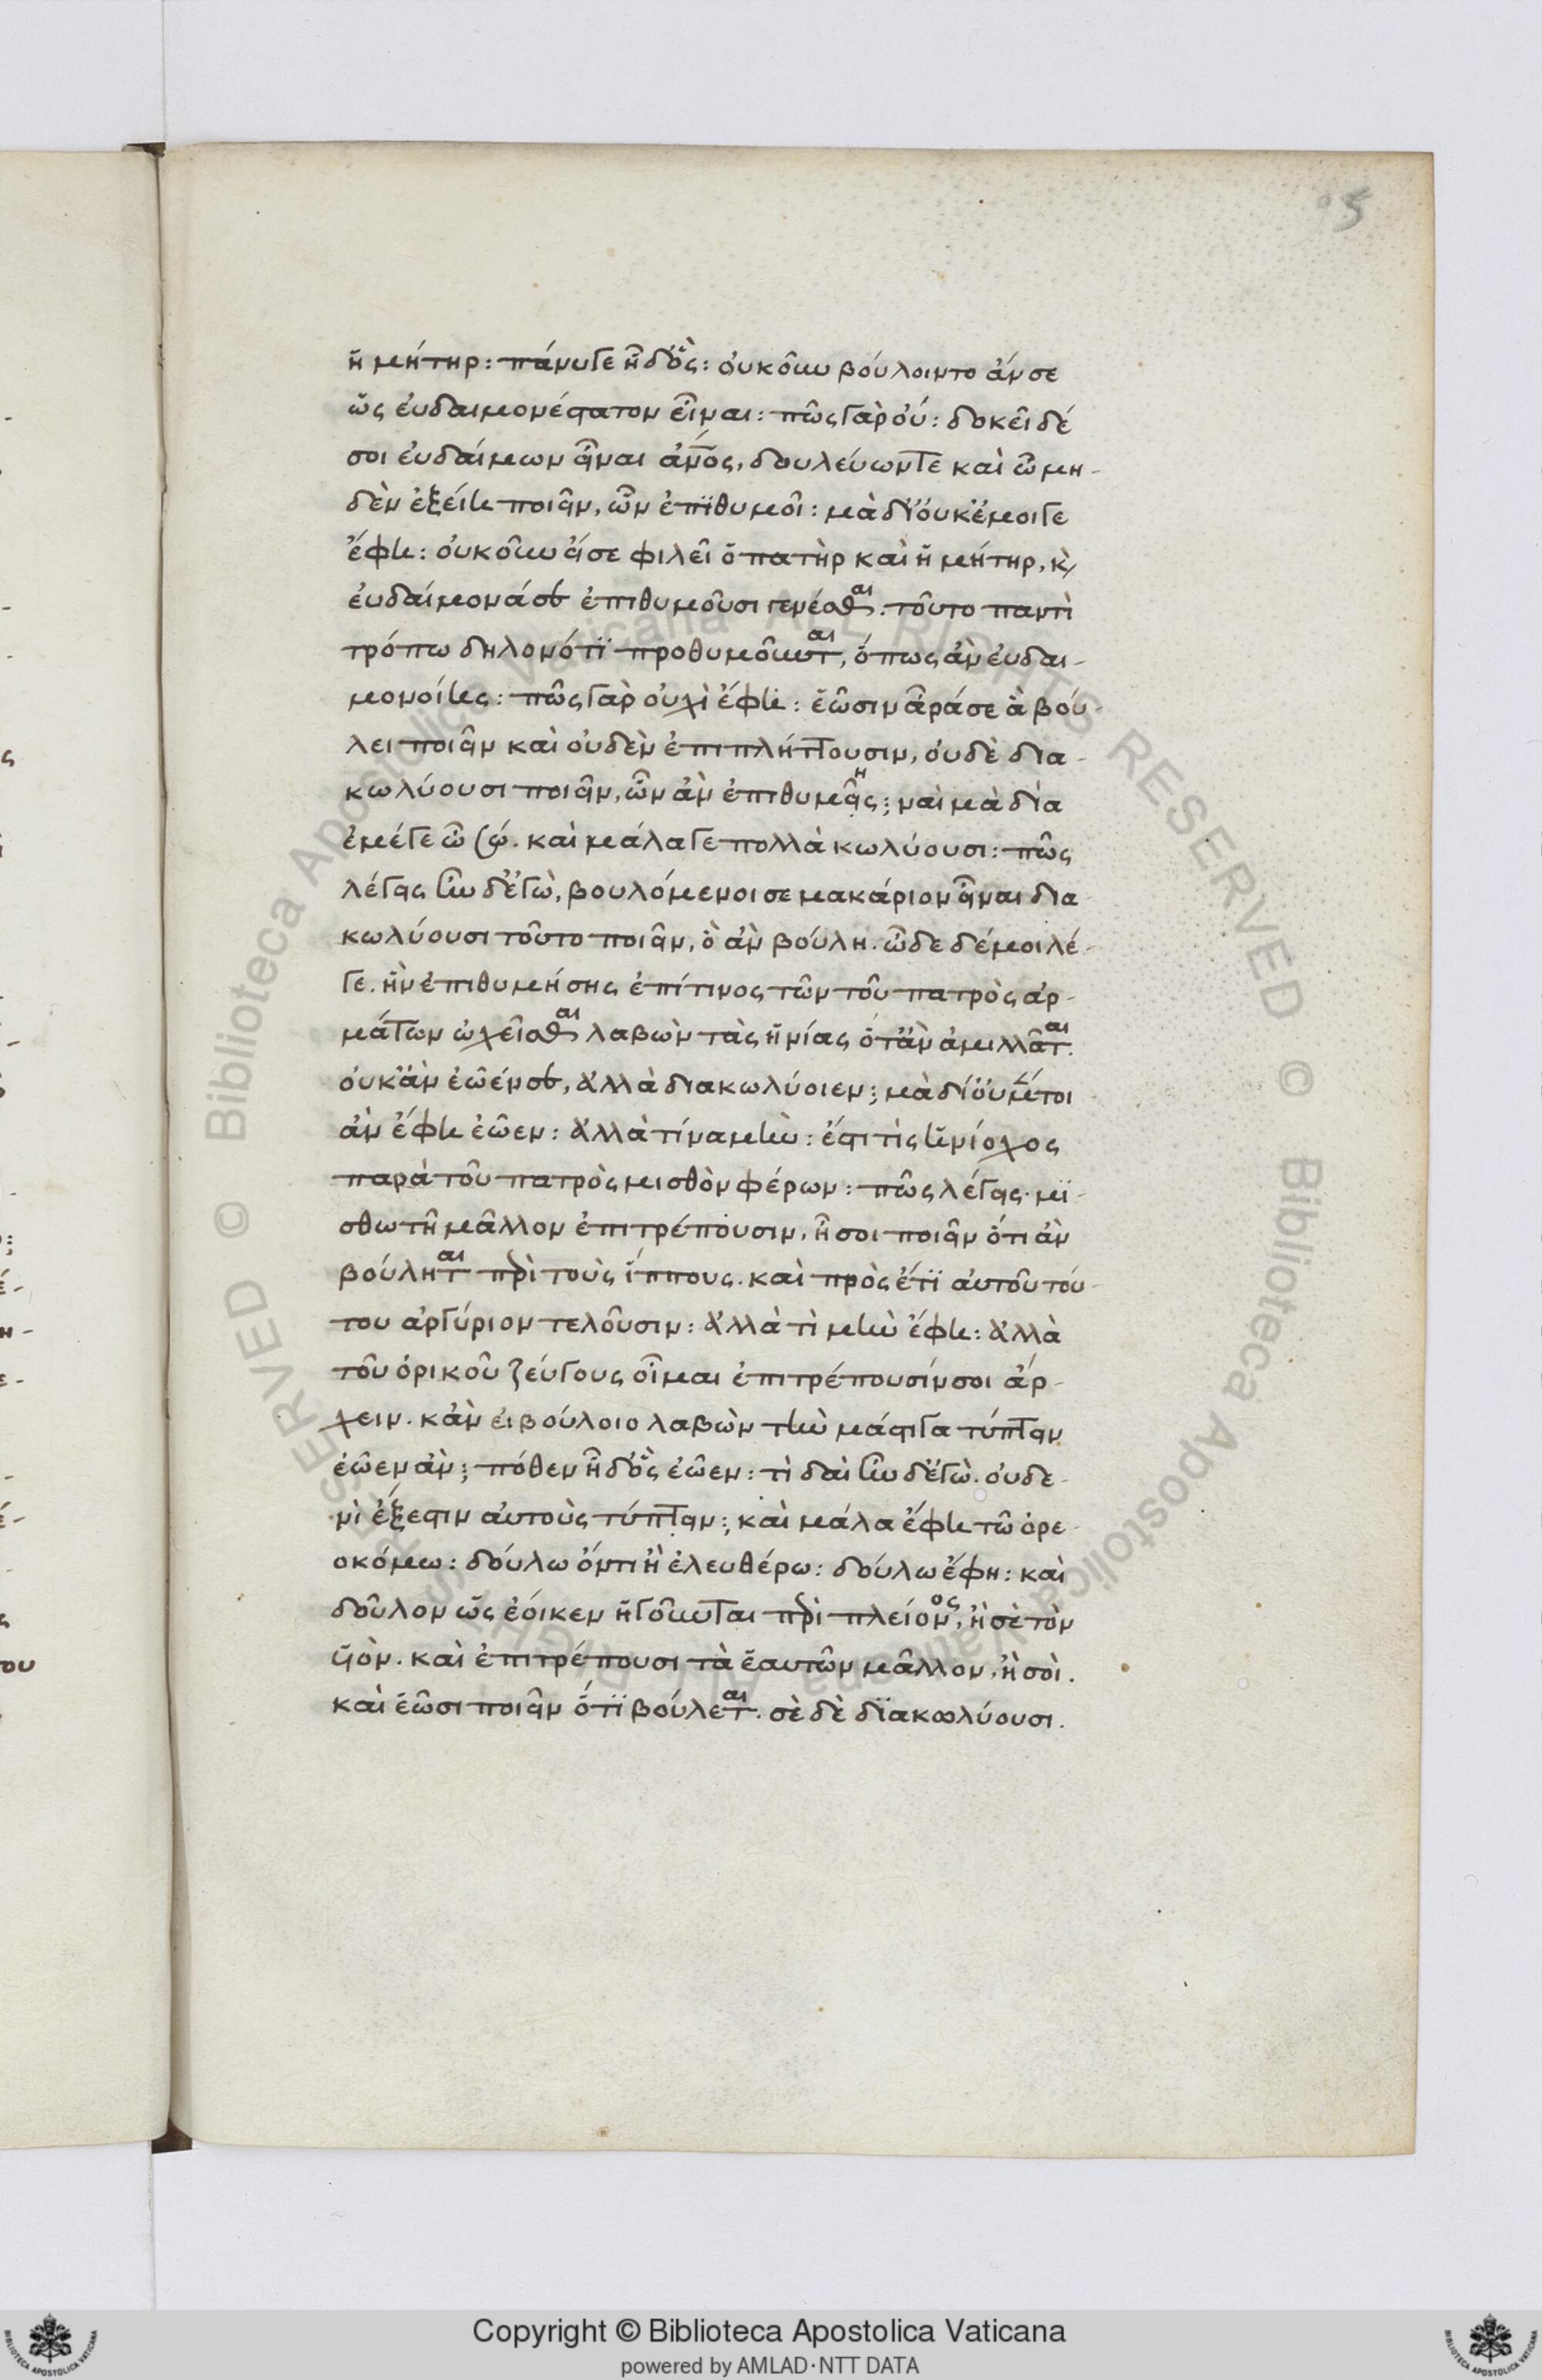 95
ἡ μήτηρ: πάνυγε ἦ δ' ὅς: οὐκοῦν βούλοιντο ἄν σε
ὡς εὐδαιμονέστατον εἶναι: πῶς γὰρ οὔ: δοκεῖ δέ
σοι εὐδαίμων εἶναι ἄνος, δουλεύων τε καὶ ὧ μη-
δὲν ἐξείη ποιεῖν, ὧν ἐπϊθυμοῖ: μὰ δί' οὐκ ἔμοιγε
ἔφη: οὐκοῦν εἴ σε φιλεῖ ὁ πατὴρ καὶ ἡ μήτηρ, κ
εὐδαίμονά σε ἐπιθυμοῦσι γενέσθαι. τοῦτο παντὶ
τρόπω δηλονότϊ προθυμοῦνται, ὅπως ἂν εὐδαι-
μονοίης: πῶς γὰρ οὐχὶ ἔφη: ἐῶσιν ἄρά σε ἃ βού-
λει ποιεῖν καὶ οὐδὲν ἐπιπλήττουσιν, οὐδὲ δια-
κωλύουσι ποιεῖν, ὧν ἂν ἐπιθυμεῖῆς; ναὶ μὰ δία
ἐμέ γε ὦ σώ. καὶ μάλα γε πολλὰ κωλύουσι: πῶς
λέγεις ἦν δ' ἐγὼ, βουλόμενοι σε μακάριον εἶναι δια
κωλύουσι τοῦτο ποιεῖν, ὃ ἂν βούλη. ὧδε δέ μοι λέ-
γε. ἢν ἐπιθυμήσης ἐπί τινος τῶν τοῦ πατρὸς ἁρ-
μάτων ὀχεῖσθαι λαβὼν τὰς ἡνίας ὅταν ἁμιλλᾶται.
οὐκ ἂν ἐῶέν σε, ἀλλὰ διακωλύοιεν; μὰ δί' οὐ μέντοι
ἂν ἔφη ἐῶεν: ἀλλὰ τίνα μὴν: ἔστι τὶς ἡνίοχος
παρὰ τοῦ πατρὸς μισθὸν φέρων: πῶς λέγεις. μϊ-
σθωτῆ μᾶλλον ἐπιτρέπουσιν, ἢ σοι ποιεῖν ὅτι ἂν
βούληται περὶ τοὺς ἵππους. καὶ πρὸς ἔτϊ αὐτοῦ τού-
του ἀργύριον τελοῦσιν: ἀλλὰ τὶ μὴν ἔφη: ἀλλὰ
τοῦ ὀρικοῦ ζεύγους οἶμαι ἐπιτρέπουσίν σοι ἄρ-
χειν. κἂν εἰ βούλοιο λαβὼν τὴν μάστιγα τύπτειν
ἐῶεν ἄν; πόθεν ἦ δ' ὃς ἐῶεν: τὶ δαὶ ἦν δ' ἐγὼ. οὐδε-
νὶ ἔξεστιν αὐτοὺς τύπτειν; καὶ μάλα ἔφη τῶ ὀρε
οκόμω: δούλω ὄντι ἢ ἐλευθέρω: δούλω ἔφη: καὶ
δοῦλον ὡς ἔοικεν ἡγοῦνται περὶ πλείονος, ἢ σὲ τὸν
υἱὸν. καὶ ἐπιτρέπουσι τὰ ἑαυτῶν μᾶλλον, ἢ σοὶ.
καὶ ἐῶσι ποιεῖν ὅτϊ βούλεται. σὲ δὲ δϊακωλύουσι.
Copyright © Biblioteca Apostolica Vaticana
powered by AMLAD·NTT DATA